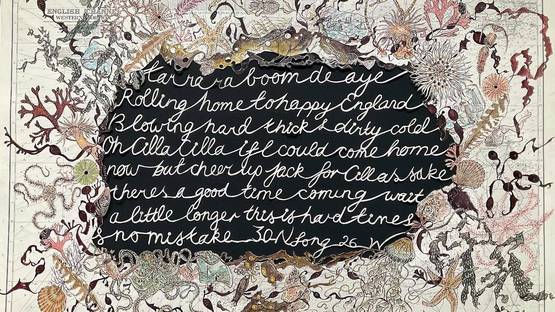 ENGLISH CHANNEL
WESTERN PORTION
Tarrara boom de aye
Rolling home to happy England
Blowing hard thick & dirty cold
Oh Cilla Cilla if I could come home
now but cheer up Jack for Cillas sake
theres a good time coming wait
a little longer this is hard times
& no mistake 30 N Long 26 W